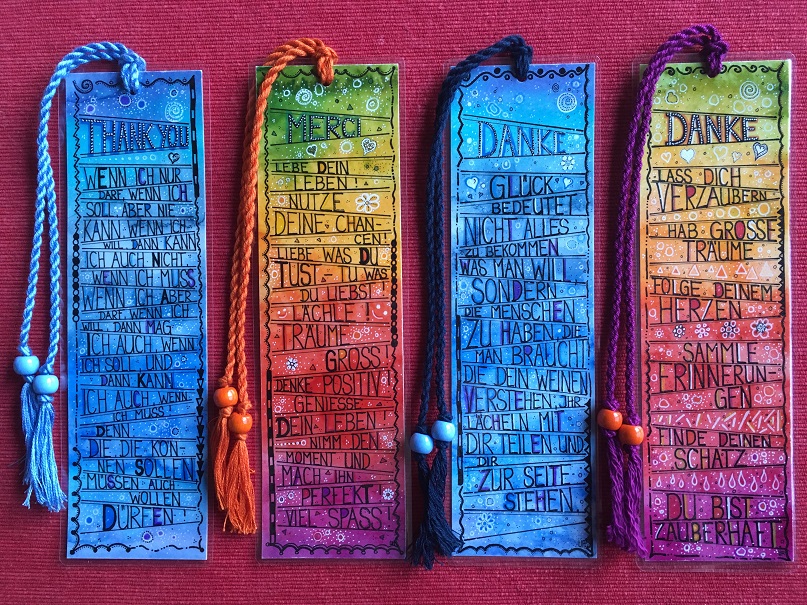 THANK YOU
WENN ICH NUR
DARF, WENN ICH
SOLL, ABER NIE
KANN, WENN ICH
WILL, DANN KANN
ICH AUCH NICHT,
WENN ICH MUSS.
WENN ICH ABER
DARF, WENN ICH
WILL, DANN MAG
ICH AUCH, WENN
ICH SOLL, UND
DANN KANN
ICH AUCH, WENN
ICH MUSS!
DENN:
DIE, DIE KÖN-
NEN SOLLEN
MÜSSEN AUCH
WOLLEN
DÜRFEN!
MERCI
LEBE DEIN
LEBEN!
NUTZE
DEINE CHAN-
CEN!
LIEBE WAS DU
TUST - TU WAS
DU LIEBST!
LÄCHLE!
TRÄUME
GROSS!
DENKE POSITIV!
GENIESSE
DEIN LEBEN!
NIMM DEN
MOMENT UND
MACH IHN
PERFEKT!
VIEL SPASS!
DANKE
GLÜCK
BEDEUTET
NICHT ALLES
ZU BEKOMMEN,
WAS MAN WILL,
SONDERN
DIE MENSCHEN
ZU HABEN, DIE
MAN BRAUCHT,
DIE DEIN WEINEN
VERSTEHEN, IHR
LÄCHELN MIT
DIR TEILEN UND
DIR
ZUR SEITE
STEHEN
DANKE
LASS DICH
VERZAUBERN
HAB GROSSE
TRÄUME
FOLGE DEINEM
HERZEN
SAMMLE
ERINNERUN-
GEN
FINDE DEINEN
SCHATZ
DU BIST
ZAUBERHAFT